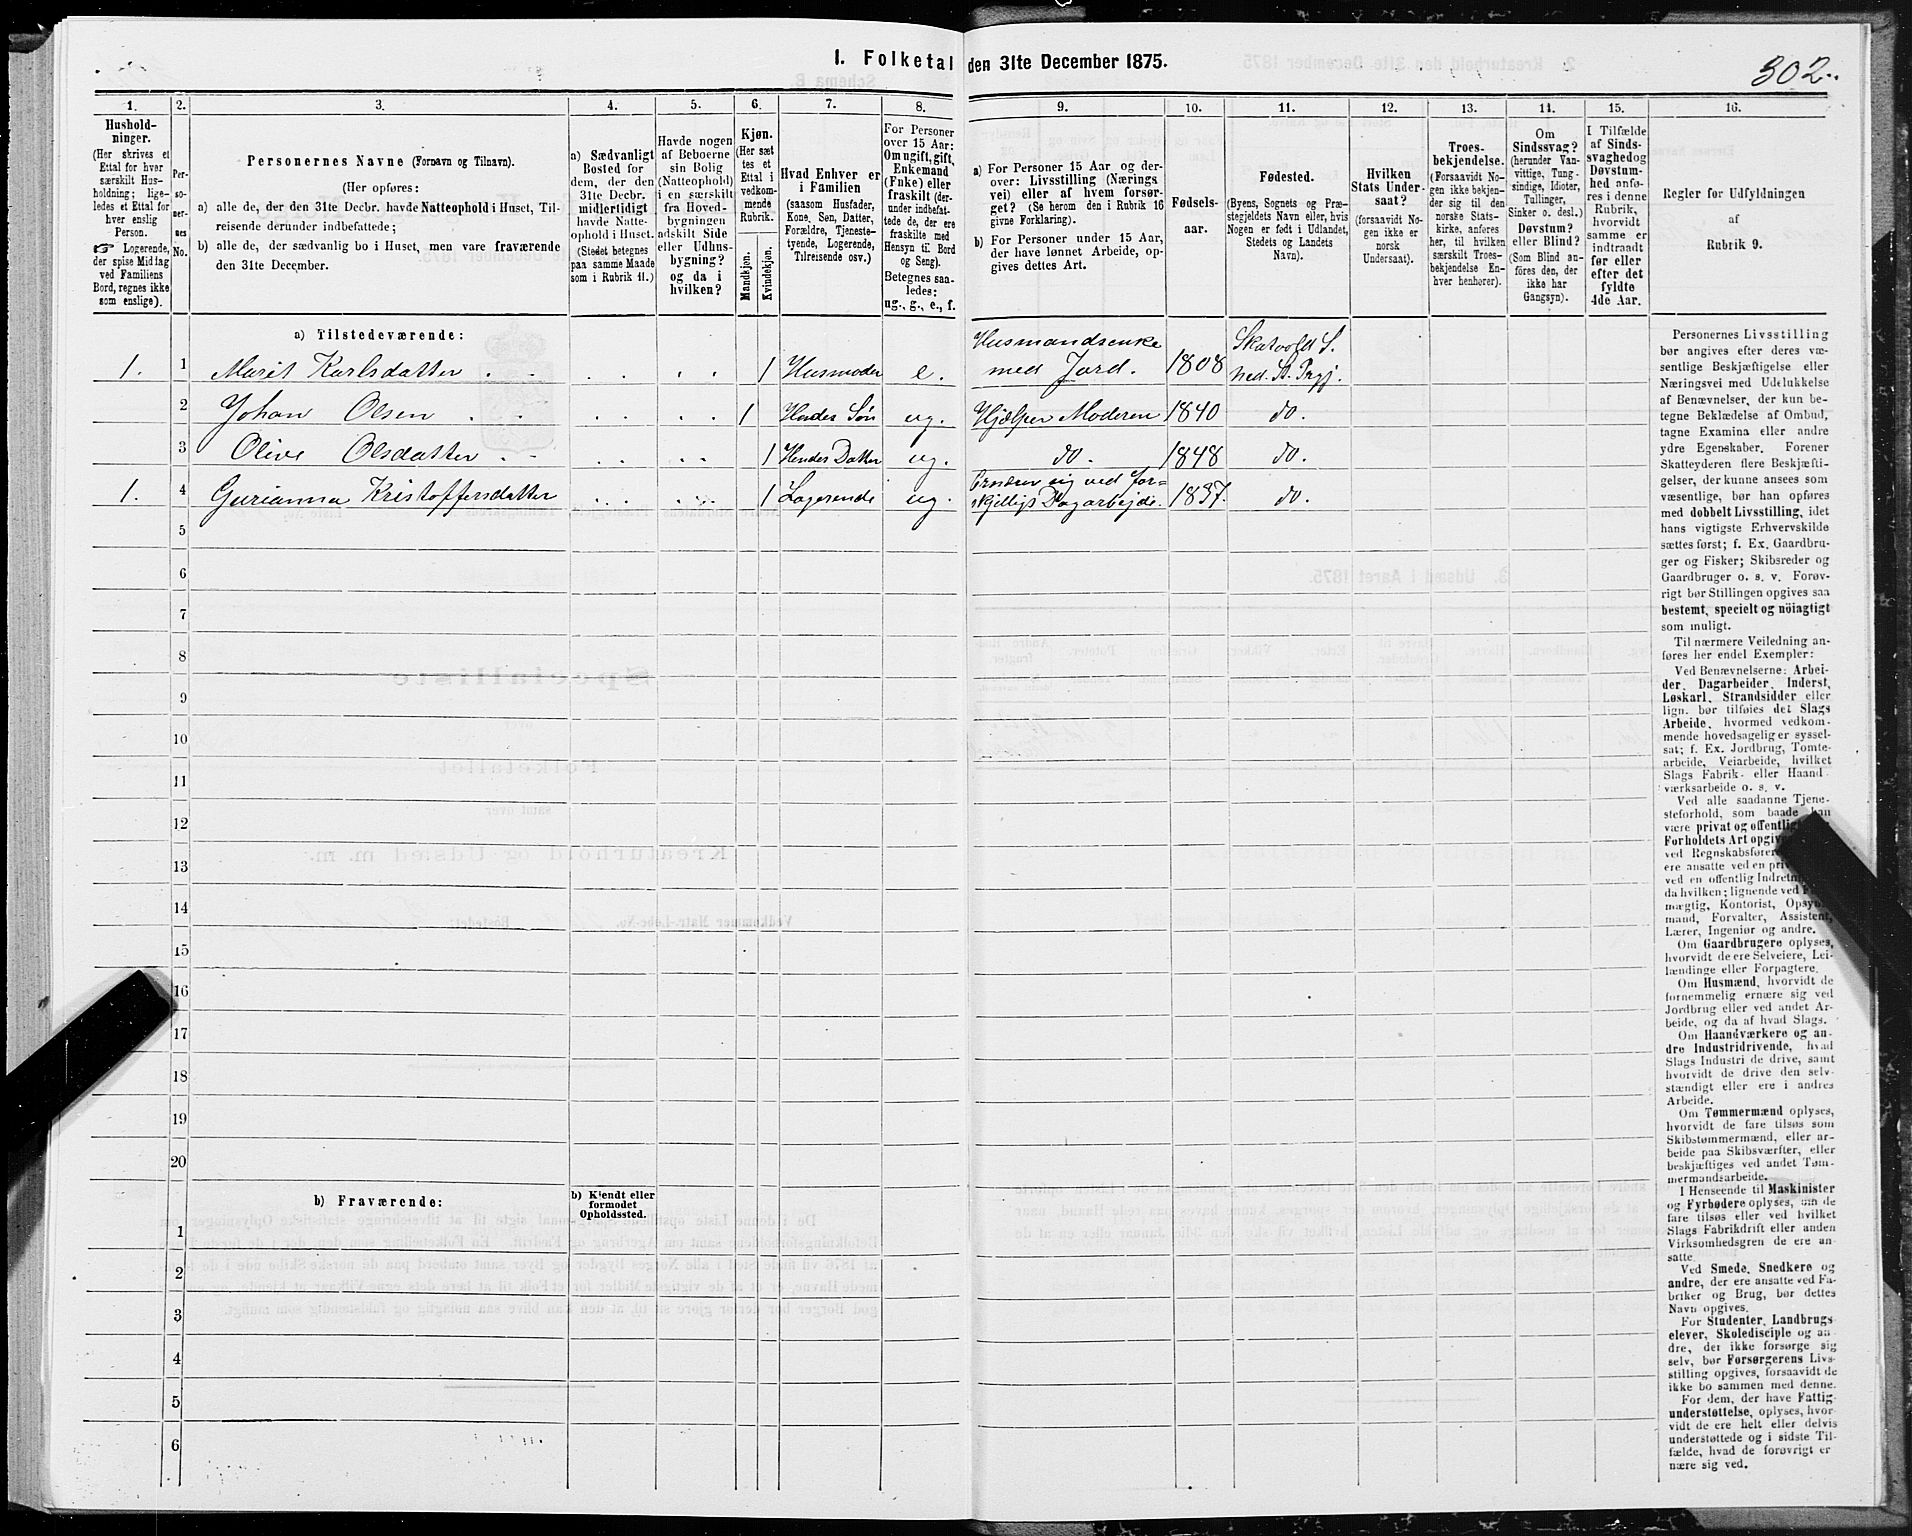 1. Folketal den 31te December 1875.
302.
1. 2. 3. 4. 5. 6. 7. 8. 9. 10. 11. 12. 13. 14. 15. 16.
Hushold-
ninger.
(Her skrives et
Ettal for hver
særskilt Hus-
holdning; lige-
ledes et Ettal for
hver enslig
Person.
☞ Logerende,
der spise Middag
ved Familiens
Bord, regnes ikke
som enslige).
Per-
so-
ner-
nes
No.
Personernes Navne (Fornavn og Tilnavn).
(Her opføres:
a) alle de, der den 31te Decbr. havde Natteophold i Huset, Til-
reisende derunder indbefattede;
b) alle de, der sædvanlig bo i Huset, men vare fraværende
den 31te December.
a) Sædvanligt
Bosted for
dem, der den
31te Decbr.
midlertidigt
havde Natte-
ophold i Huset.
(Stedet betegnes
paa samme Maade
som i Rubrik 11.)
Havde nogen
af Beboerne
sin Bolig
(Natteophold)
i en særskilt
fra Hoved-
bygningen
adskilt Side
eller Udhus-
bygning?
og da i
hvilken?
Kjøn.
(Her sæt
tes et
Ettal i
vedkom-
mende
Rubrik.
Mandkjøn.
Kvindekjøn.
Hvad Enhver er
i Familien
(saasom Husfader,
Kone, Søn, Datter,
Forældre, Tjeneste-
tyende, Logerende,
Tilreisende osv.)
For Personer
over 15 Aar:
Om ugift, gift,
Enkemand
(Enke) eller
fraskilt (der-
under indbefat-
tede de, der ere
fraskilte med
Hensyn til Bord
og Seng).
Betegnes saa-
ledes:
ug., g., e., f.
a) For Personer 15 Aar og der-
over: Livsstilling (Nærings
vei) eller af hvem forsør-
get? (Se herom den i Rubrik 16
givne Forklaring).
b) For Personer under 15 Aar,
der have lønnet Arbeide, op-
gives dettes Art.
Fødsels-
aar.
Fødested.
(Byens, Sognets og Præ-
stegjeldets Navn eller, hvis
Nogen er født i Udlandet,
Stedets og Landets
Navn).
Hvilken
Stats Under-
saat?
(forsaavidt No-
gen ikke er
norsk
Undersaat).
Troes-
bekjendelse.
(Forsaavidt No-
gen ikke bekjen-
der sig til den
norske Stats-
kirke, anføres
her, til hvilken
særskilt Troes-
bekjendelse En-
hver henhører).
Om
Sindssvag?
(herunder Van-
vittige, Tung-
sindige, Idioter,
Tullinger,
Sinker o. desl.)
Døvstum?
eller Blind?
(Som Blind an-
føres den, der
ikke har
Gangsyn).
I Tilfælde
af Sinds-
svaghed og
Døvstum-
hed anfø-
res i denne
Rubrik,
hvorvidt
samme er
indtraadt
før eller
efter det
fyldte
4de Aar.
Regler for Udfyldningen
af
Rubrik 9.
a) Tilstedeværende:
1. 1 Marit Karlsdatter 1 Husmoder e. Husmandsenke
med Jord. 1808 Skatvold S.
Ned. St. Prgj.
2 Johan Olsen 1 Hendes Søn ug. Hjælper Moderen 1840 do.
3 Olive Olsdatter 1 Hendes Datter ug. do. 1848 do.
1. 4 Gurianna Kristoffersdatter 1 Logerende ug. Ernærer sig ved for-
skjelligt Dagarbejde. 1837. do.
5
6
7
8
9
10
11
12
13
14
15
16
17
18
19
20
b) Fraværende:
b) Kjendt eller
formodet
Opholdssted.
1
2
3
4
5
6
Personernes Livsstilling
bør angives efter deres væ-
sentlige Beskjæftigelse eller
Næringsvei med Udelukkelse
af Benævnelser, der kun be-
tegne Beklædelse af Ombud,
tagne Examina eller andre
ydre Egenskaber. Forener
Skatteyderen flere Beskjæfti-
gelser, der kunne ansees som
væsentlige, bør han opføres
med dobbelt Livsstilling, idet
hans vigtigste Erhvervskilde
sættes først; f. Ex. Gaardbru-
ger og Fisker; Skibsreder og
Gaardbruger o. s. v. Forøv-
rigt bør Stillingen opgives saa
bestemt, specielt og nöiagtigt
som muligt.
Til nærmere Veiledning an-
føres her endel Exempler:
Ved Benævnelserne: Arbei-
der, Dagarbeider, Inderst,
Løskarl, Strandsidder eller
lign. bør tilføies det Slags
Arbeide, hvormed vedkom-
mende hovedsagelig er syssel-
sat; f. Ex. Jordbrug, Tomte-
arbeide, Veiarbeide, hvilket
Slags Fabrik- eller Haand-
værksarbeide o. s. v.
Ved alle saadanne Tjene-
steforhold, som baade kan
være privat og offentlig
Forholdets Art opgiv
ved Regnskabsfører
ere ansatte ved en pri
ved en offentlig Indretn
da hvilken; lignende ved
mægtig, Kontorist, Opsyn
mand, Forvalter, Assistent,
Lærer, Ingeniør og andre.
Om Gaardbrugere oplyses,
hvorvidt de ere Selveiere, Lei-
lændinge eller Forpagtere.
Om Husmænd, hvorvidt de
fornemmelig ernære sig ved
Jordbrug eller ved andet Ar-
beide, og da af hvad Slags.
Om Haandværkere og an-
dre Industridrivende, hvad
Slags Industri de drive, samt
hvorvidt de drive den selv-
stændigt eller ere i andres
Arbeide.
Om Tømmermænd oplyses,
hvorvidt de fare tilsøs som
Skibstømmermænd, eller ar-
beide paa Skibsværfter, eller
beskjæftiges ved andet Tøm-
mermandsarbeide.
I Henseende til Maskinister
og Fyrbødere oplyses, om de
fare tilsøs eller ved hvilket
Slags Fabrikdrift eller anden
Virksomhedsgren de ere an-
satte
Ved Smede, Snedkere og
andre, der ere ansatte ved Fa-
briker og Brug, bør dettes
Navn opgives.
For Studenter, Landbrugs-
elever, Skoledisciple og an-
dre, der ikke forsørge sig
selv, bør Forsørgerens Livs-
stilling opgives, forsaavidt de
ikke bo sammen med denne.
For dem, der have Fattig-
understøttelse, oplyses, hvor-
vidt de ere helt eller delvis
understøttede og i sidste Til-
fælde, hvad de forøvrigt er
nære sig ved.